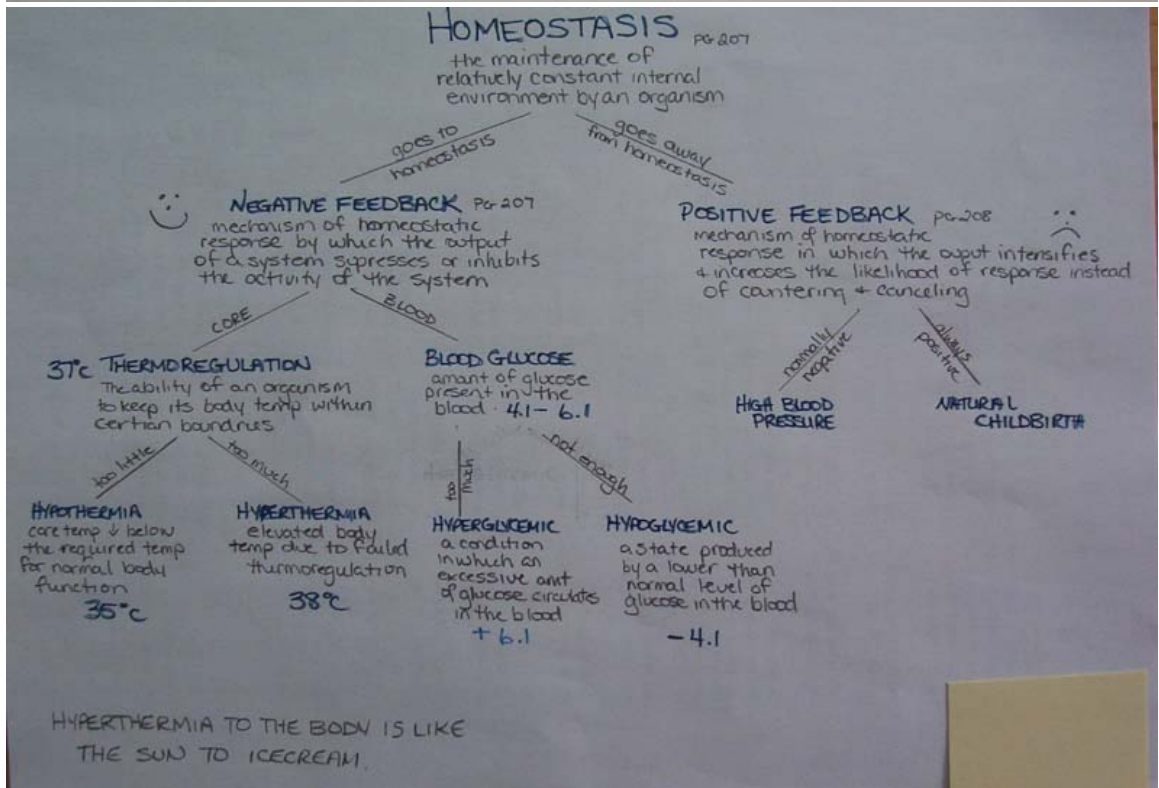 HOMEOSTASIS PG 207
the maintenance of
relatively constant internal
environment by an organism
goes to
homeostasis
goes away
from homeostasis
NEGATIVE FEEDBACK PG 207
mechanism of homeostatic
response by which the output
of a system supresses or inhibits
the activity of the system
POSITIVE FEEDBACK PG 208
mechanism of homeostatic
response in which the ouput intensifies
+ increases the likelihood of response instead
of cantering + canceling
CORE
BLOOD
37°C THERMOREGULATION
The ability of an organism
to keep its body temp within
certian boundries
BLOOD GLUCOSE
amant of glucose
present in the
blood · 4.1 - 6.1
normally
negative
always
positive
HIGH BLOOD
PRESSURE
NATURAL
CHILDBIRTH
too little
too much
too
much
not enough
HYPOTHERMIA
core temp ↓ below
the required temp
for normal body
function
35°C
HYPERTHERMIA
elevated body
temp due to failed
thurmoregulation
38°C
HYPERGLYCEMIC
a condition
in which an
excessive amt
of glucose circulates
in the blood
+ 6.1
HYPOGLYCEMIC
a state produced
by a lower than
normal level of
glucose in the blood
- 4.1
HYPERTHERMIA TO THE BODY IS LIKE
THE SUN TO ICECREAM.